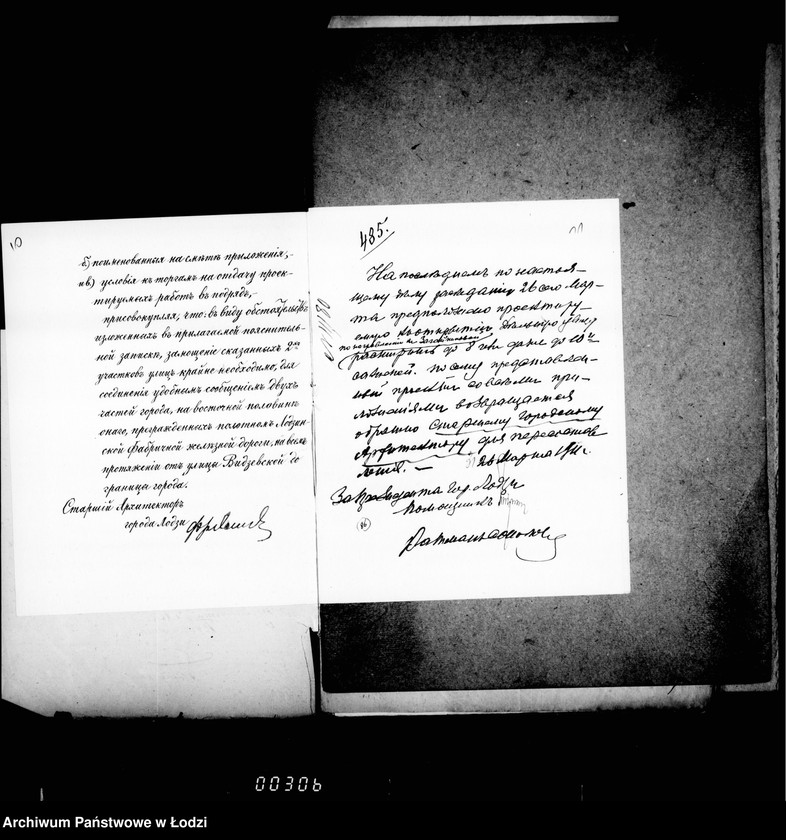 б) поименованныя на смѣтѣ приложенія,
и в) условія къ торгамъ на отдачу проек-
тируемыхъ работъ въ подрядъ,
присовокупляя, что: въ виду обстоятельствъ
изложенныхъ въ прилагаемой пояснитель-
ной запискѣ, замощеніе сказанныхъ 2хъ
участковъ улицъ крайне необходимо, для
соединенія удобнымъ сообщеніемъ двухъ
частей города, на восточной половинѣ
онаго, прегражденныхъ полотномъ Лодзин-
ской Фабричной желѣзной дороги, на всемъ
протяженіи отъ улицы Видзевской до
границы города.
Старшій Архитекторъ
города Лодзи
485.
На послѣднемъ по настоя-
щему дѣлу засѣданіи 26 сего Мар-
та предположено проектиру
емую
расширить до 8 или даже до 10и
саженей. Посему представлен-
ный проектъ со всѣми при-
ложеніями возвращается
обратно Старшему Городскому
Архитектору для пересостав
ленія. —
28 Марта 1911 г.
За Президента Гор. Лодзи
Помощникъ
00306
Archiwum Państwowe w Łodzi